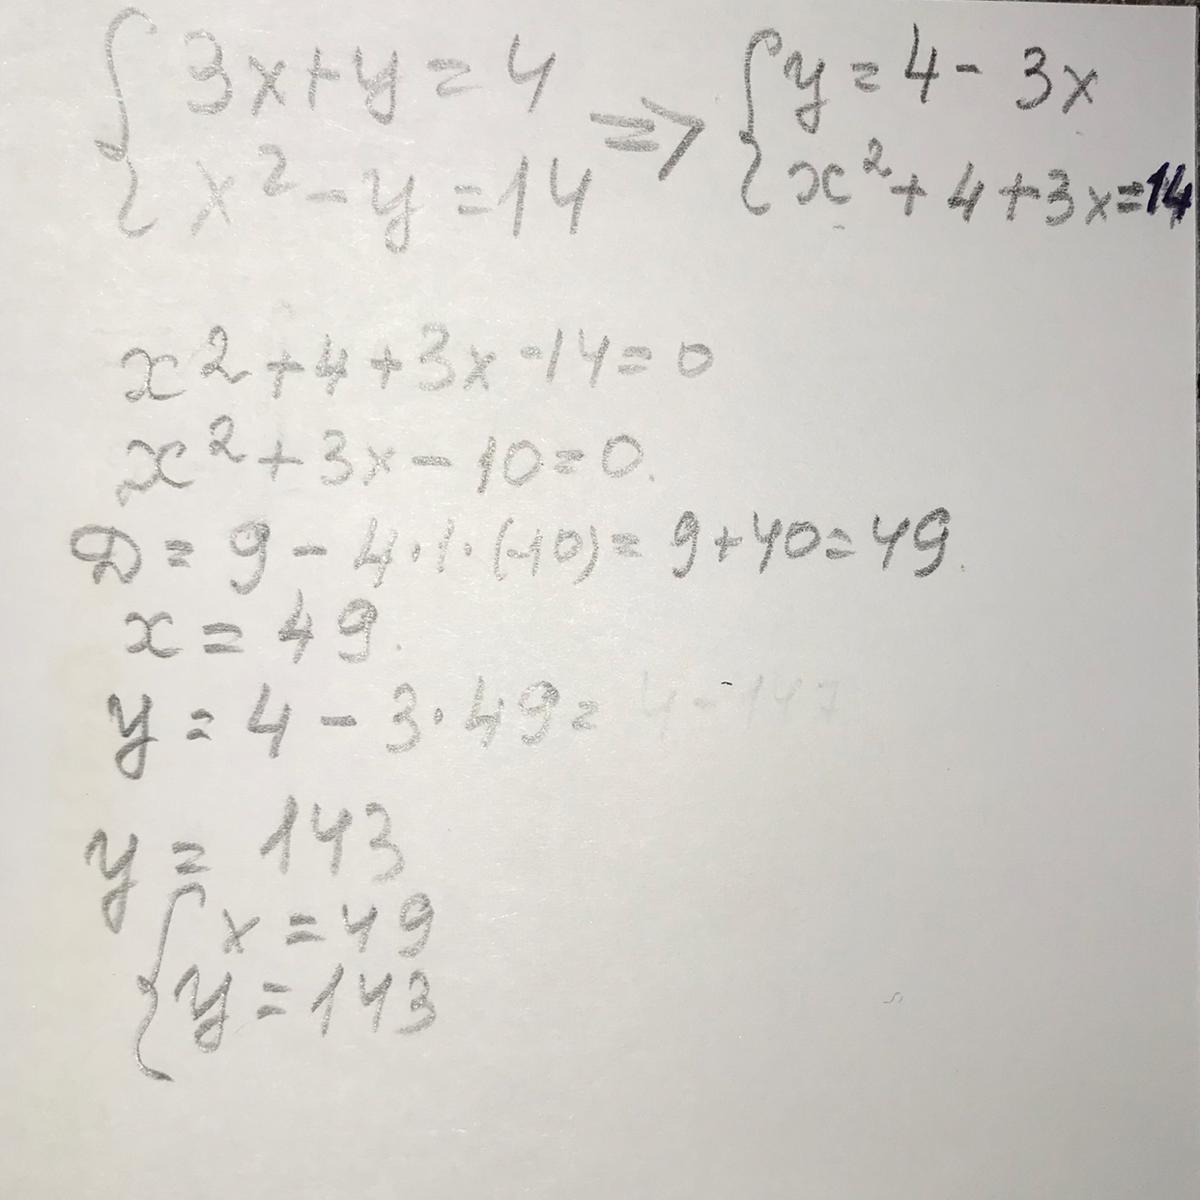 { 3x+y=4 => { y=4-3x
{ x²-y=14 { x²+4+3x=14
x²+4+3x-14=0
x²+3x-10=0.
D=9-4·1·(-10)=9+40=49.
x=49.
y=4-3·49=4-147
y=143
{ x=49
{ y=143